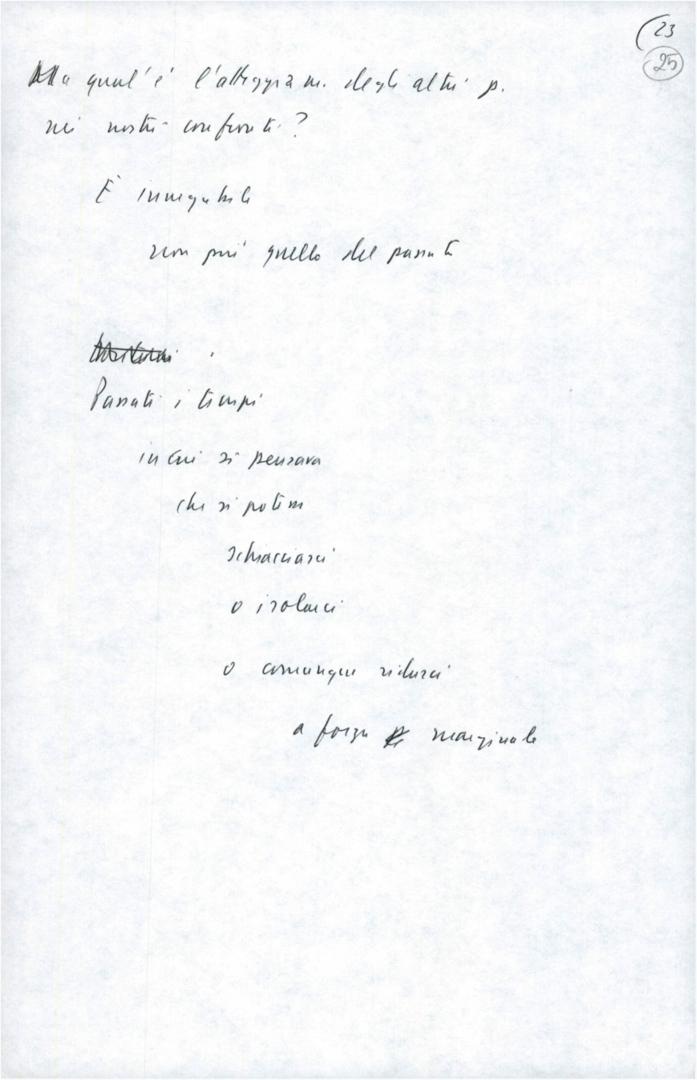 (23
25
Ma qual'è l'atteggiam. degli altri p.
nei nostri confronti?
È innegabile
non più quello del passato
Passati i tempi
in cui si pensava
che si potesse
schiacciarci
o isolarci
o comunque ridurci
a forza marginale